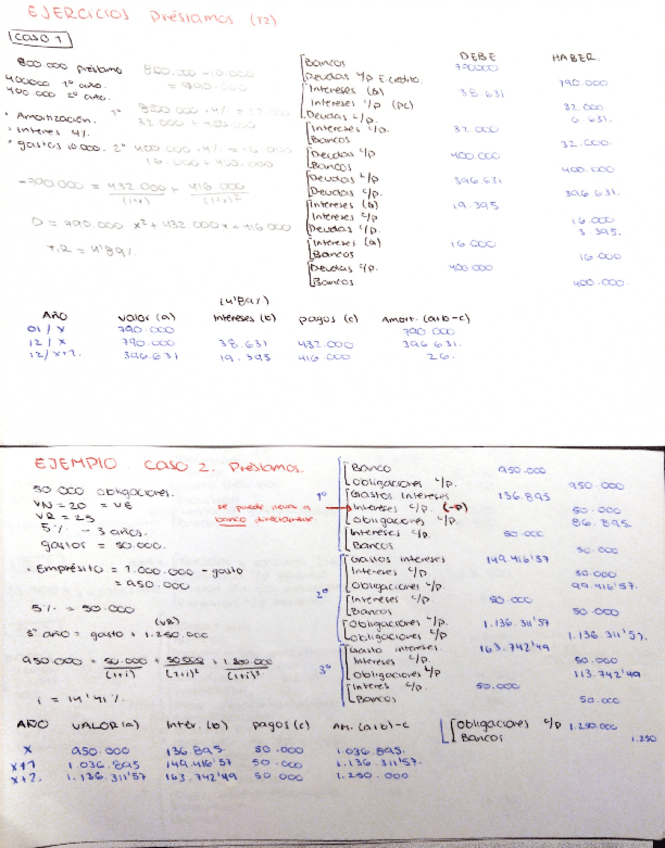 EJERCICIOS Préstamos (12)
CASO 1
DEBE HABER
800.000 préstamo 800.000 - 10.000
= 790.000
400000 1º año.
400.000 2º año.
• Amortización. 1º 800.000 · 4% =
32.000 + 400.000
• Interes 4%
• gastos 10.000. 2º 400.000 · 4% = 16.000
16.000 + 400.000
-790.000 = 432.000/(1+x) + 416.000/(1+x)²
0 = 790.000 x² + 432.000 x + 416.000
T.R = 4'89%
Bancos 790000
Deudas L/p E.Crédito. 790.000
Intereses (b) 38.631
Intereses c/p (pc) 32.000
Deudas L/p. 6.631.
Intereses c/p. 32.000
Bancos 32.000.
Deudas c/p 400.000
Bancos 400.000
Deudas L/p 396.631
Deudas c/p. 396.631.
Intereses (b) 19.395
Intereses c/p 16.000
Deudas c/p. 3.395.
Intereses (a) 16.000
Bancos 16.000
Deudas c/p. 400.000
Bancos 400.000.
(4'89%)
AÑO Valor (a) Intereses (b) pagos (c) Amort. (a+b-c)
01/X 790.000 790.000
12/X 790.000 38.631 432.000 396.631.
12/X+1. 396.631 19.395 416.000 26.
EJEMPLO CASO 2. Préstamos.
50.000 obligaciones.
VN = 20 = VE
VR = 25
5% - 3 años.
gastos = 50.000.
• Empréstito = 1.000.000 - gasto
= 950.000
5% = 50.000
(VR)
3º año = gasto + 1.250.000
950.000 = 50.000/(1+i) + 50.000/(1+i)² + 1.300.000/(1+i)³
i = 14'41%
se puede llevar a
banco directamente.
Banco 950.000
Obligaciones L/p. 950.000
1º
Gastos Intereses 136.895
Intereses c/p. (-P) 50.000
Obligaciones L/p. 86.895.
Intereses c/p. 50.000
Bancos 50.000.
2º
Gastos intereses 149.416'57
Intereses c/p 50.000
Obligaciones L/p 99.416'57.
Intereses c/p 50.000
Bancos 50.000
Obligaciones L/p. 1.136.311'57
Obligaciones c/p 1.136.311'57.
3º
Gasto intereses. 163.742'49
Intereses c/p. 50.000
Obligaciones c/p 113.742'49
Interes c/p. 50.000
Bancos 50.000
Obligaciones c/p 1.250.000
Bancos 1.250
AÑO VALOR (a) Inter. (b) pagos (c) AM. (a+b)-c
X 950.000 136.895. 50.000 1.036.895.
X+1 1.036.895 149.416'57 50.000 1.136.311'57.
X+2. 1.136.311'57 163.742'49 50.000 1.250.000